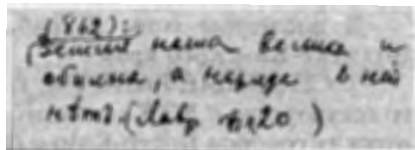 (862):
(Земля наша велика и
обилна, а наряда в ней
нѣтъ. (Лавр 20)